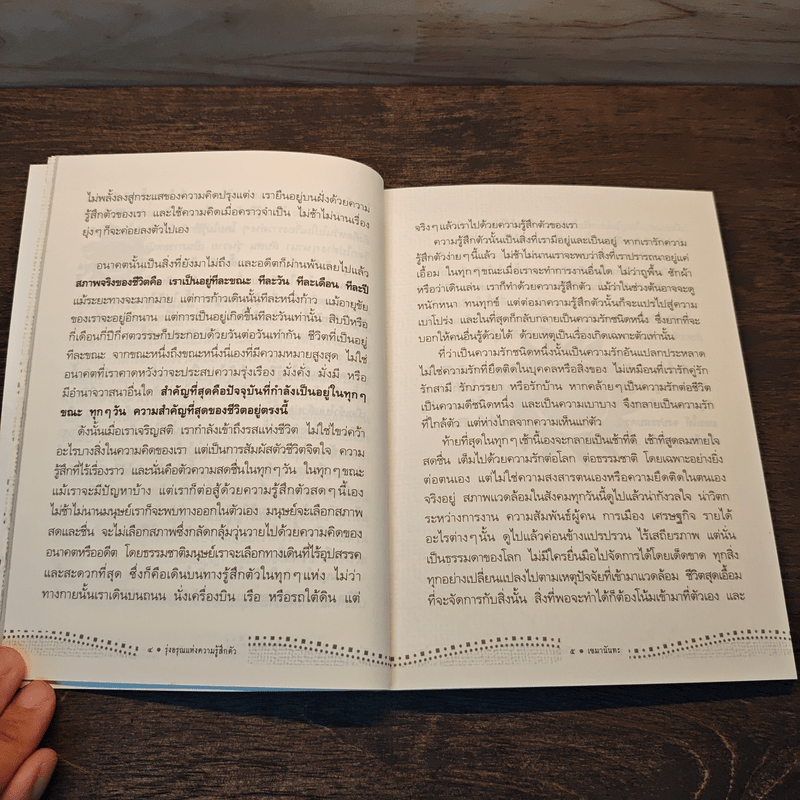 ไม่พลั้งลงสู่กระแสของความคิดปรุงแต่ง เรายืนอยู่บนฝั่งด้วยความ
รู้สึกตัวของเรา และใช้ความคิดเมื่อคราวจำเป็น ไม่ช้าไม่นานเรื่อง
ยุ่งๆ ก็จะค่อยลงตัวไปเอง
อนาคตนั้นเป็นสิ่งที่ยังมาไม่ถึง และอดีตก็ผ่านพ้นเลยไปแล้ว
สภาพจริงของชีวิตคือ เราเป็นอยู่ทีละขณะ ทีละวัน ทีละเดือน ทีละปี
แม้ระยะทางจะมากมาย แต่การก้าวเดินนั้นทีละหนึ่งก้าว แม้อายุขัย
ของเราจะอยู่อีกนาน แต่การเป็นอยู่เกิดขึ้นทีละวันเท่านั้น สิบปีหรือ
กี่เดือนกี่ปีกี่ศตวรรษก็ประกอบด้วยวันต่อวันเท่ากัน ชีวิตที่เป็นอยู่
ทีละขณะ จากขณะหนึ่งถึงขณะหนึ่งนี่เองที่มีความหมายสูงสุด ไม่ใช่
อนาคตที่เราคาดหวังว่าจะประสบความรุ่งเรือง มั่งคั่ง มั่งมี หรือ
มีอำนาจวาสนาอื่นใด สำคัญที่สุดคือปัจจุบันที่กำลังเป็นอยู่ในทุกๆ
ขณะ ทุกๆ วัน ความสำคัญที่สุดของชีวิตอยู่ตรงนี้
ดังนั้นเมื่อเราเจริญสติ เรากำลังเข้าถึงรสแห่งชีวิต ไม่ใช่ไขว่คว้า
อะไรบางสิ่งในความคิดของเรา แต่เป็นการสัมผัสตัวชีวิตจิตใจ ความ
รู้สึกที่ไร้เรื่องราว และนั่นคือตัวความสดชื่นในทุกๆ วัน ในทุกๆ ขณะ
แม้เราจะมีปัญหาบ้าง แต่เราก็ต่อสู้ด้วยความรู้สึกตัวสดๆ นี้เอง
ไม่ช้าไม่นานมนุษย์เราก็จะพบทางออกในตัวเอง มนุษย์จะเลือกสภาพ
สดและชื่น จะไม่เลือกสภาพซึ่งกลัดกลุ้มวุ่นวายไปด้วยความคิดของ
อนาคตหรืออดีต โดยธรรมชาติมนุษย์เราจะเลือกทางเดินที่ไร้อุปสรรค
และสะดวกที่สุด ซึ่งก็คือเดินบนทางรู้สึกตัวในทุกๆ แห่ง ไม่ว่า
ทางกายนั้นเราเดินบนถนน นั่งเครื่องบิน เรือ หรือรถใต้ดิน แต่
๔ • รุ่งอรุณแห่งความรู้สึกตัว
จริงๆ แล้วเราไปด้วยความรู้สึกตัวของเรา
ความรู้สึกตัวนั้นเป็นสิ่งที่เรามีอยู่และเป็นอยู่ หากเรารักความ
รู้สึกตัวง่ายๆ นี้แล้ว ไม่ช้าไม่นานเราจะพบว่าสิ่งที่เราปรารถนาอยู่แค่
เอื้อม ในทุกๆ ขณะเมื่อเราจะทำการงานอื่นใด ไม่ว่าถูพื้น ซักผ้า
หรือว่าเดินเล่น เราก็ทำด้วยความรู้สึกตัว แม้ว่าในช่วงต้นอาจจะดู
หนักหนา ทนทุกข์ แต่ต่อมาความรู้สึกตัวนั้นก็จะแปรไปสู่ความ
เบาโปร่ง และในที่สุดก็กลับกลายเป็นความรักชนิดหนึ่ง ซึ่งยากที่จะ
บอกให้คนอื่นรู้ด้วยได้ ด้วยเหตุเป็นเรื่องเกิดเฉพาะตัวเท่านั้น
ที่ว่าเป็นความรักชนิดหนึ่งนั้นเป็นความรักอันแปลกประหลาด
ไม่ใช่ความรักที่ยึดติดในบุคคลหรือสิ่งของ ไม่เหมือนที่เรารักคู่รัก
รักสามี รักภรรยา หรือรักบ้าน หากคล้ายๆ เป็นความรักต่อชีวิต
เป็นความดีชนิดหนึ่ง และเป็นความเบาบาง จึงกลายเป็นความรัก
ที่ใกล้ตัว แต่ห่างไกลจากความเห็นแก่ตัว
ท้ายที่สุดในทุกๆ เช้านี้เองจะกลายเป็นเช้าที่ดี เช้าที่สูดลมหายใจ
สดชื่น เต็มไปด้วยความรักต่อโลก ต่อธรรมชาติ โดยเฉพาะอย่างยิ่ง
ต่อตนเอง แต่ไม่ใช่ความสงสารตนเองหรือความยึดติดในตนเอง
จริงอยู่ สภาพแวดล้อมในสังคมทุกวันนี้ดูไปแล้วน่ากังวลใจ น่าวิตก
ระหว่างการงาน ความสัมพันธ์ผู้คน การเมือง เศรษฐกิจ รายได้
อะไรต่างๆ นั้น ดูไปแล้วค่อนข้างแปรปรวน ไร้เสถียรภาพ แต่นั่น
เป็นธรรมดาของโลก ไม่มีใครยื่นมือไปจัดการได้โดยเด็ดขาด ทุกสิ่ง
ทุกอย่างเปลี่ยนแปลงไปตามเหตุปัจจัยที่เข้ามาแวดล้อม ชีวิตสุดเอื้อม
ที่จะจัดการกับสิ่งนั้น สิ่งที่พอจะทำได้ก็ต้องโน้มเข้ามาที่ตัวเอง และ
๕ • เขมานันทะ